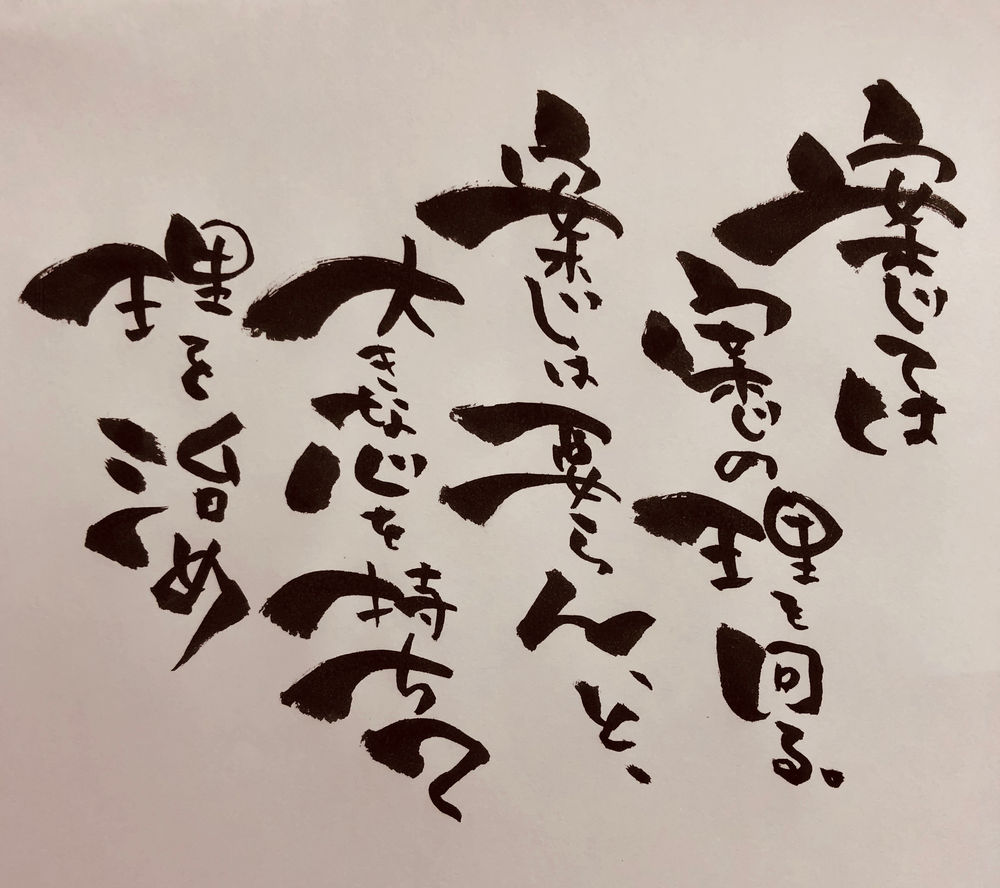 案じては
案じの理を回る。
案じは要らんと、
大きな心を持ちて
理を治め